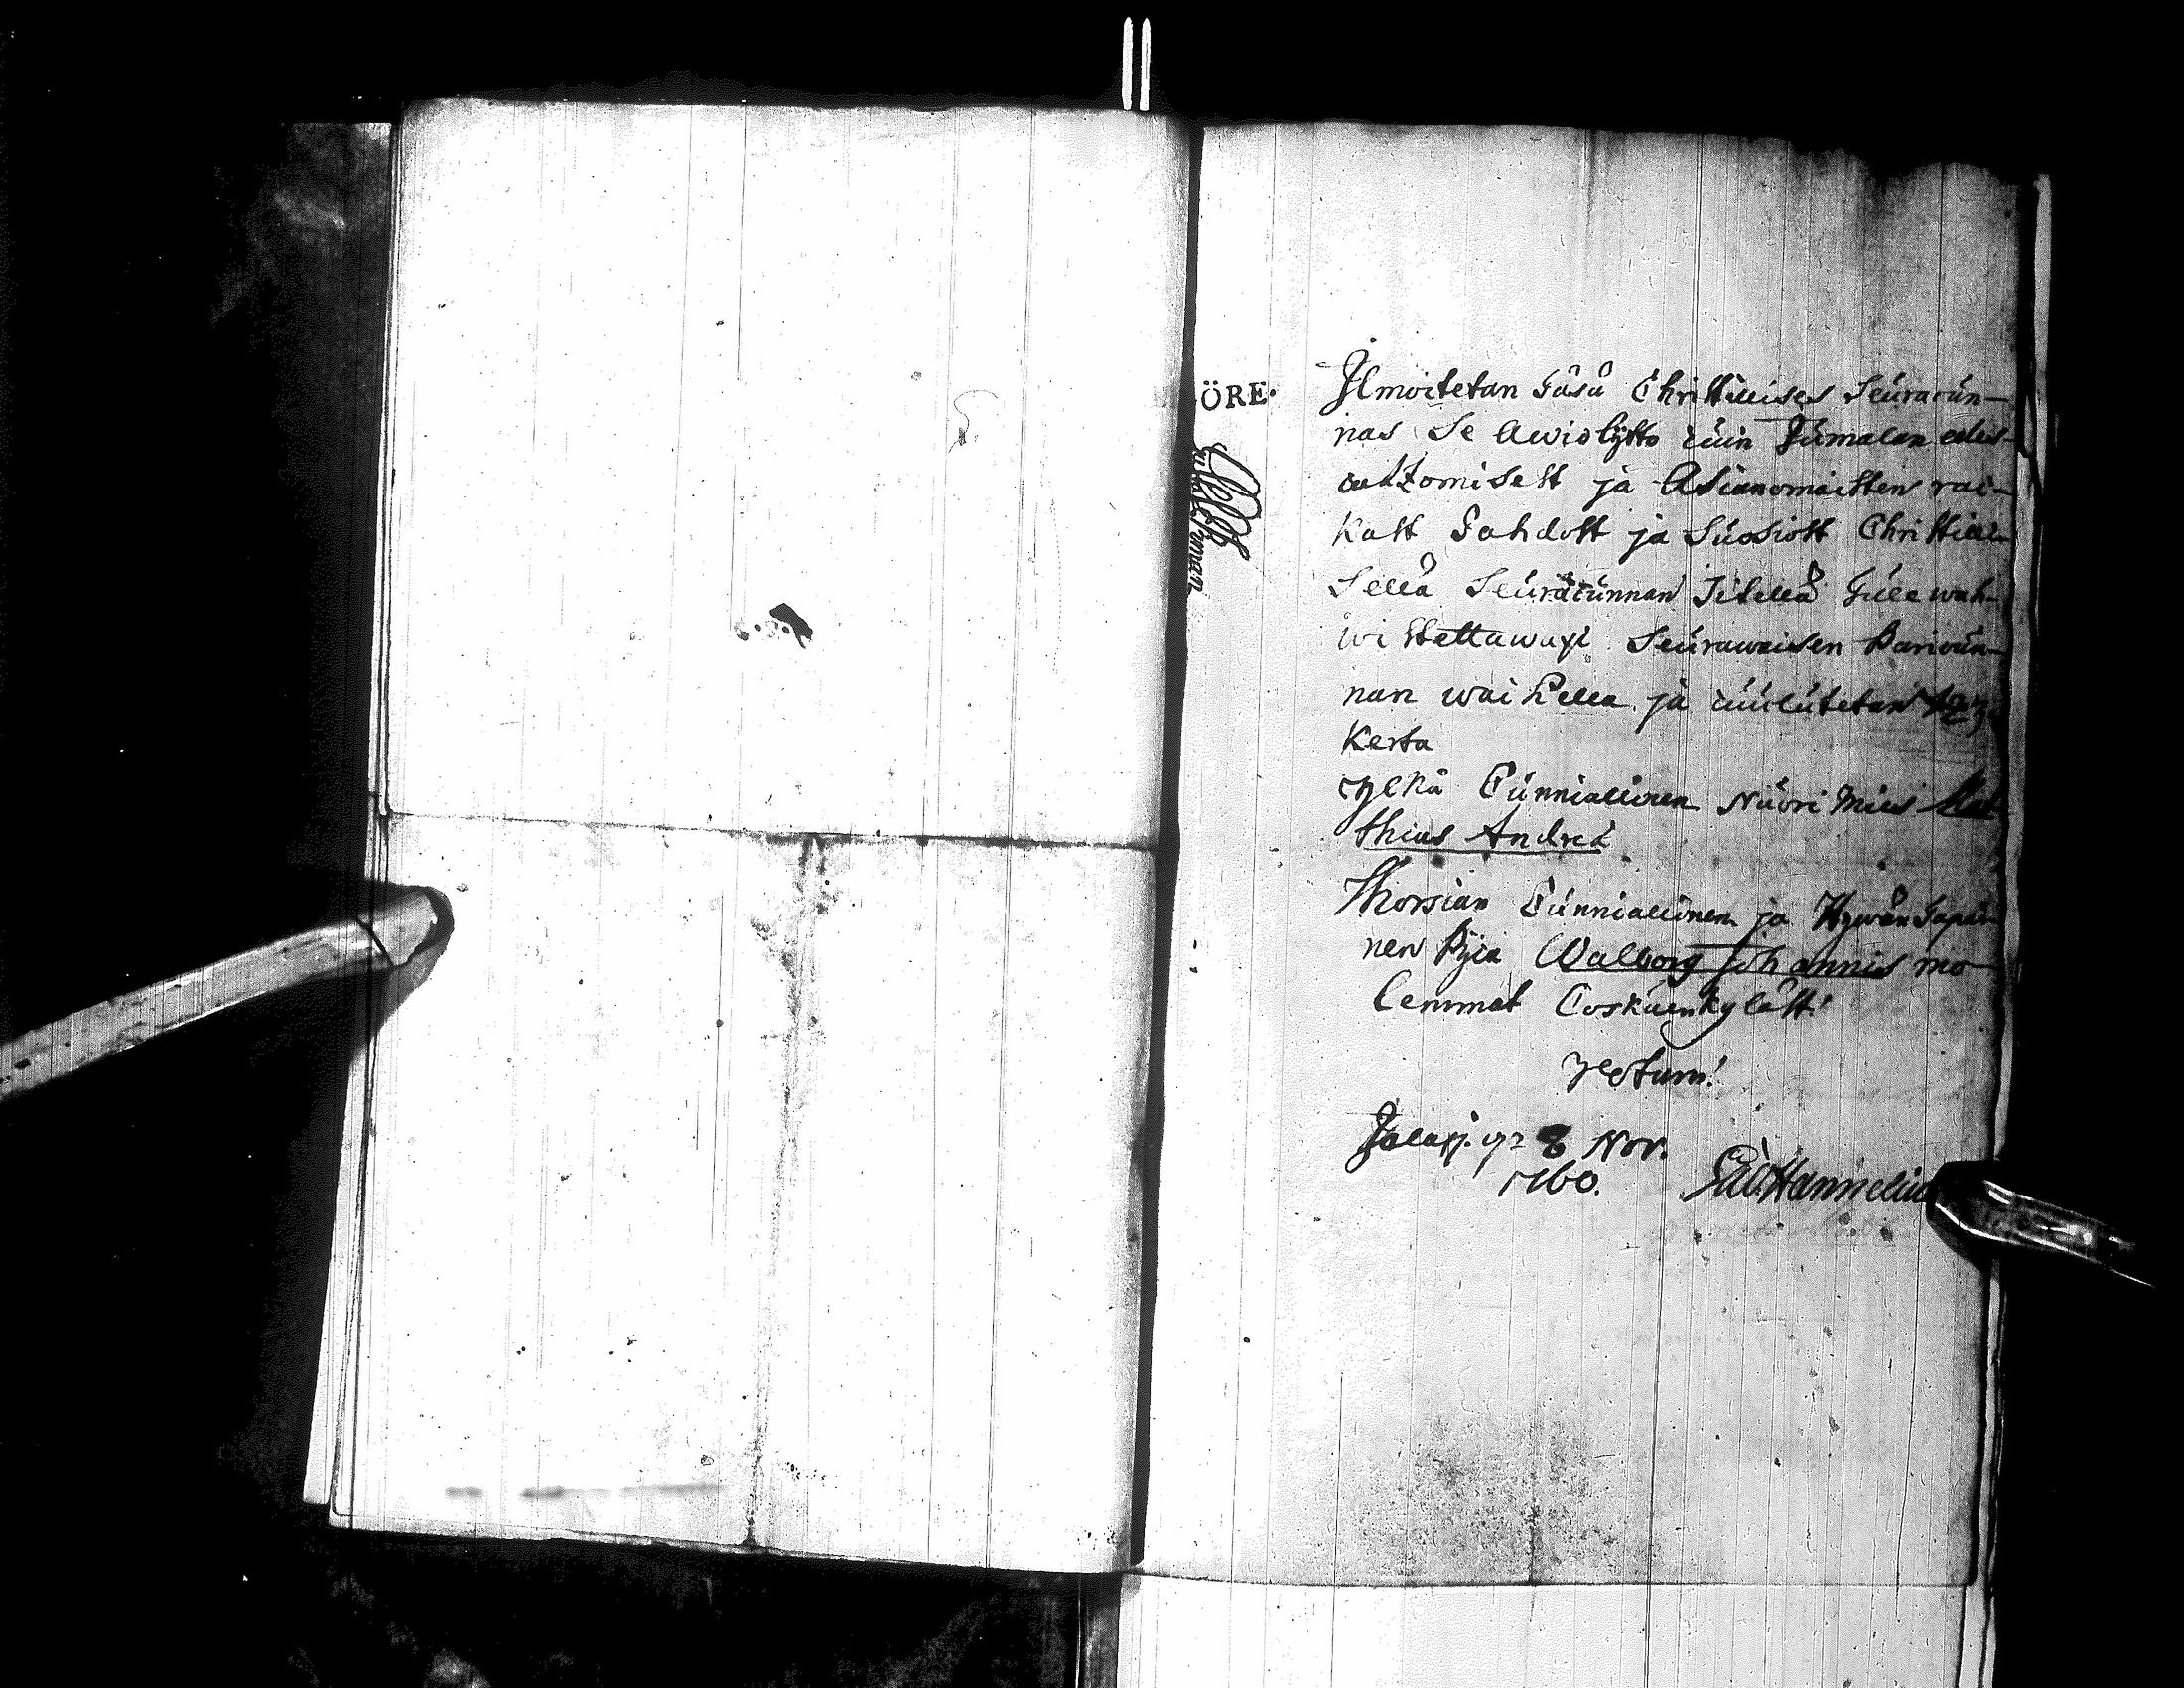 ÖRE.
Ilmoitetan Täsä Christillises Seuracun-
nas Se Awiokytto cuin Jumalan edes
catzomisest ja Asianomaisten rai-
Katt Tahdott ja Suosiott Christilli-
sellä Seuracunnan Tiellä Tulewah-
wistettawaxi Seurawaisen Pariscun-
nan waihella ja cuulutetan
Kerta
Ylkä Cunniallinen Nuori Mies Mat-
thias Andreæ
Morsian Cunniallinen ja Hywän Tapai-
nen Pyia Walborg Johannis mo-
lemmat Coskuenkylätt!
Jalasj. 8 Nov.
1760. Hannelius